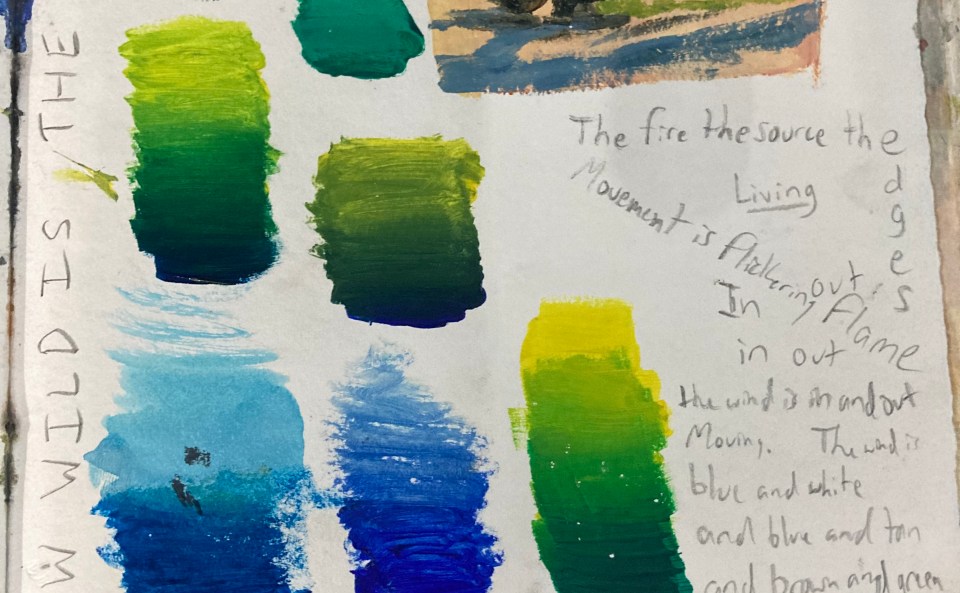 W WILD IS THE
The fire the source the edges
Living
Movement is flickering flame
In out
in out
the wind is in and out
Moving. The wind is
blue and white
and blue and tan
and brown and green